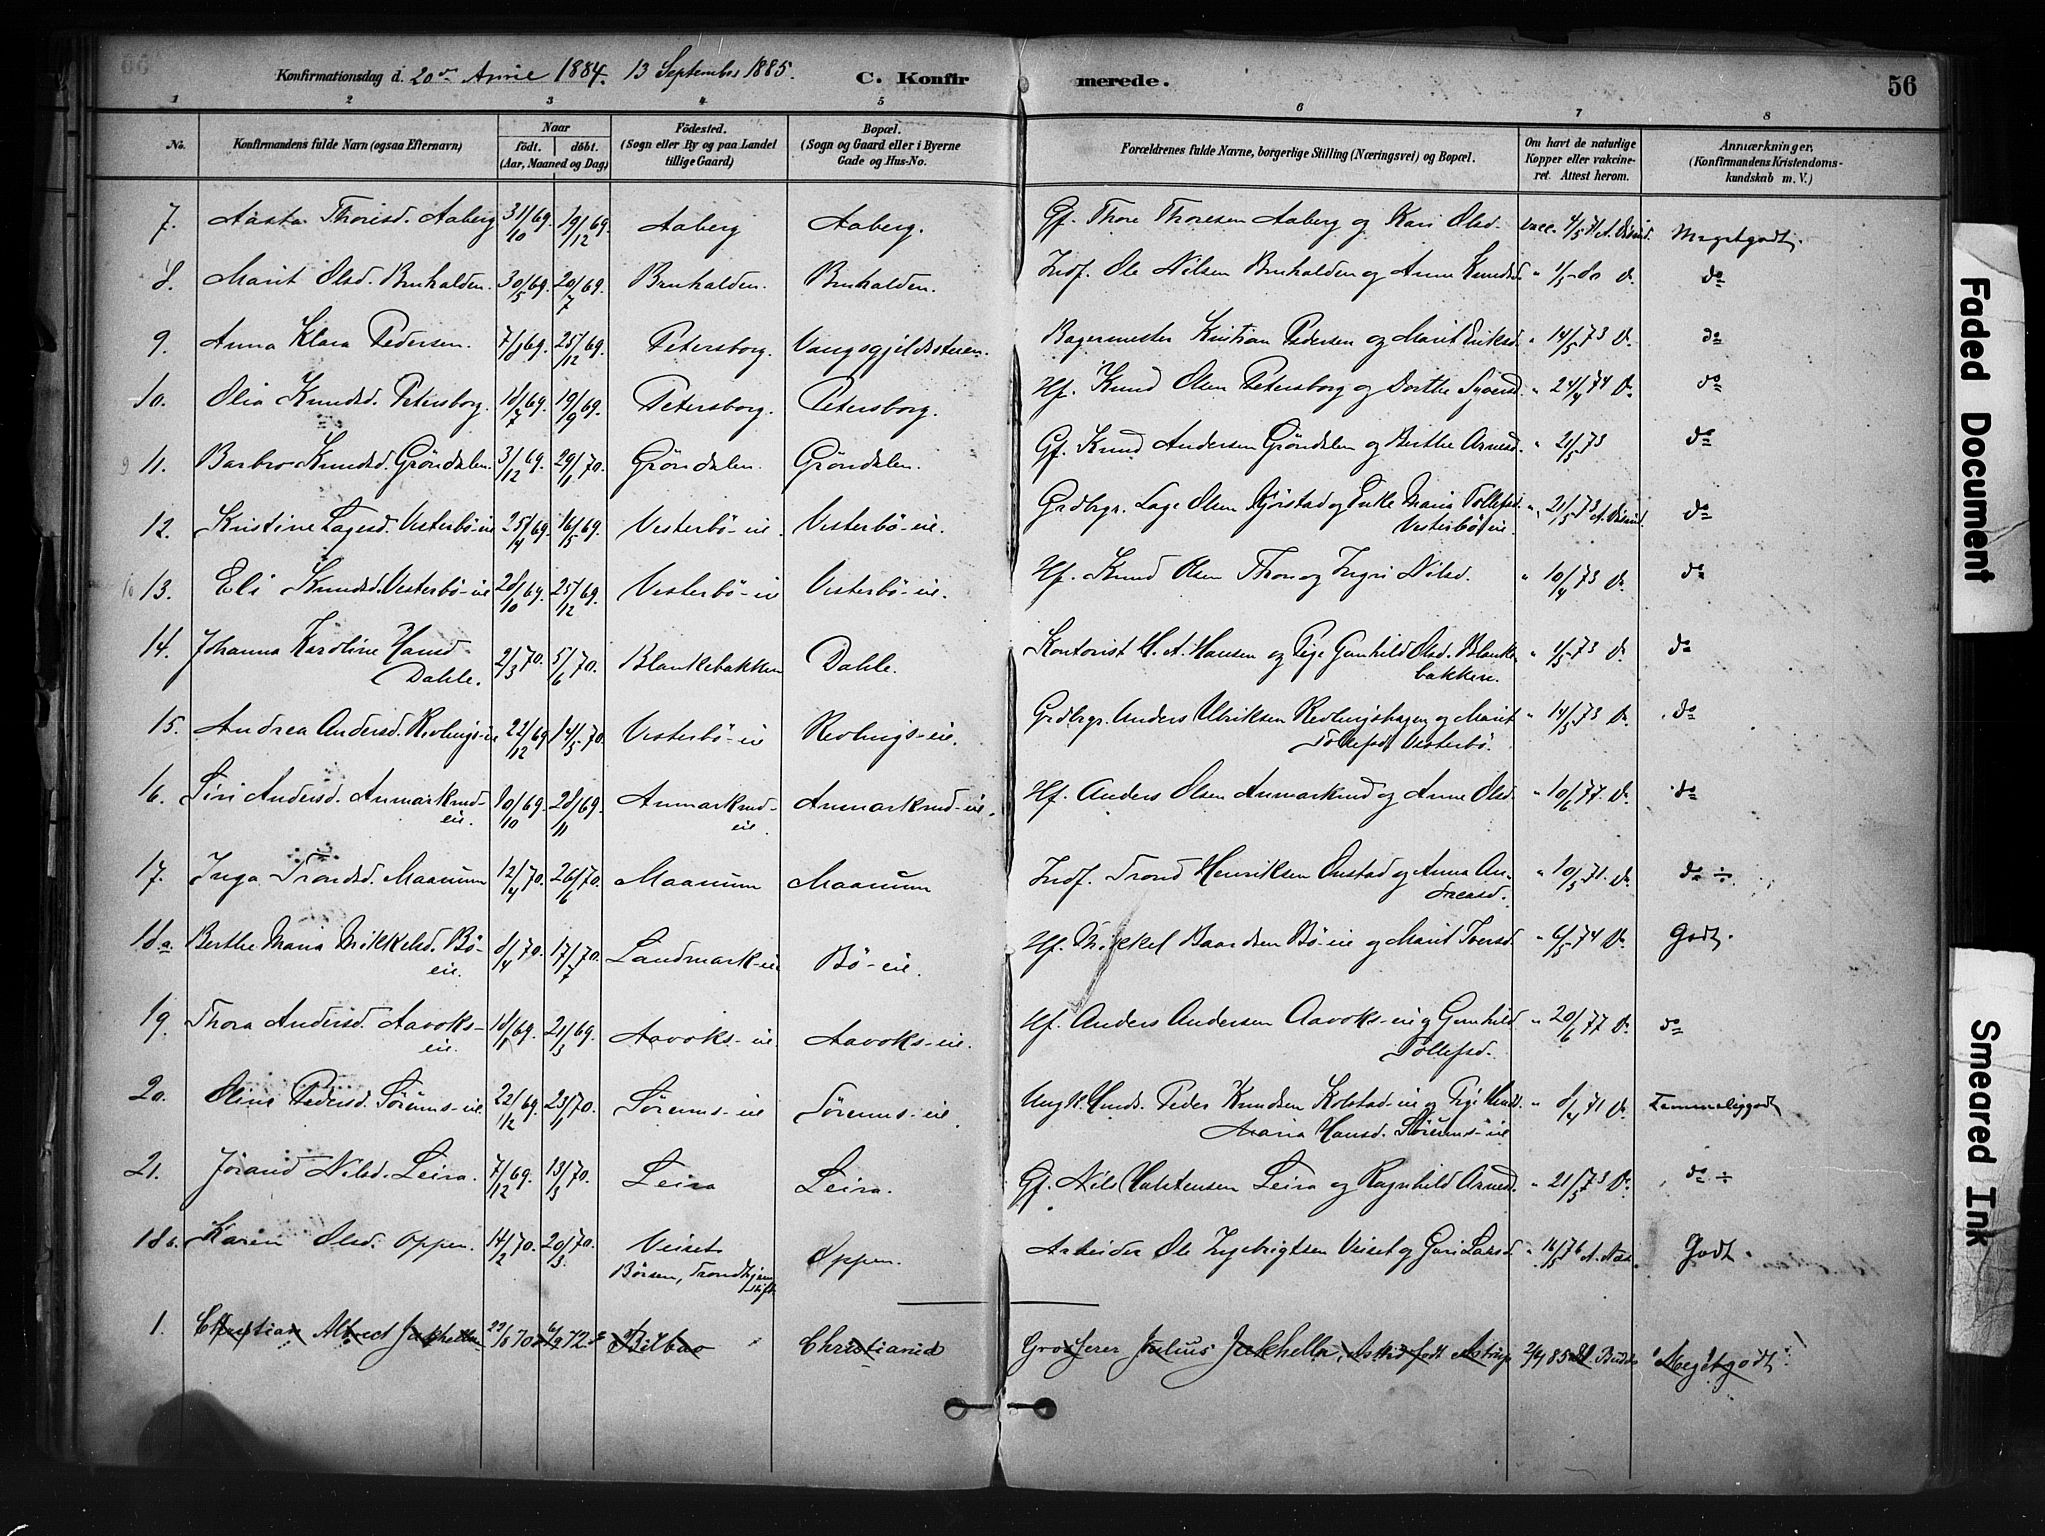 Konfirmationsdag d. 20de Annie 1884. 13 September 1885. C. Konfirmerede. 56
1 2 3 4 5 6 7 8
No. Konfirmandens fulde Navn (ogsaa Efternavn) Naar født. døbt. (Aar, Maaned og Dag) Fødested. (Sogn eller By og paa Landet tillige Gaard) Bopæl. (Sogn og Gaard eller i Byerne Gade og Hus-No. Forældrenes fulde Navne, borgerlige Stilling (Næringsvei) og Bopæl. Om havt de naturlige Kopper eller vakcineret. Attest herom. Anmærkninger. (Konfirmandens Kristendomskundskab m. V.)
7. Aasta Thoresd. Aaberg 31/10 69. 19/12 69. Aaberg Aaberg. Gf. Thore Thoresen Aaberg og Kari Olsd. vacc. 4/5 71 Megetgodt.
8. Marit Olsd. Bruhalden. 30/5 69. 20/7 69. Bruhalden. Bruhalden. Indf. Ole Nilsen Bruhalden og Anne Knudsd. do
9. Anna Klara Pedersen. 7/8 69. 25/12 69. Petersborg. Vangsgjeldsstuen. Bagermester Kristian Pedersen og Marit Eriksd. " 14/5 73 Do. do
10. Olia Knudsd. Petersborg. 18/7 69. 19/9 69. Petersborg. Petersborg. Hf. Knud Olsen Petersborg og Dorthe Syversd. " 24/4 74 Do. do
9 11. Barbro Knudsd. Gröndalen. 3/12 69. 29/1 70. Gröndalen. Gröndalen. Gf. Knud Andersen Gröndalen og Berthe Arnesd. " 21/5 73 do
12. Kristine Lagesd. Vesterbö-eie 25/4 69. 16/5 69. Vesterbö-eie. Vesterbö-eie. Grdbrgr. Lage Olsen Kjörstad og Enke Maria Tollefsd. Vesterbö eie. " 21/5 73 do
10 13. Eli Knudsd. Vesterbö-eie 28/10 69. 25/12 69. Vesterbö-eie Vesterbö-eie. Hf. Knud Olsen Thon og Ingri Nilsd. " 10/4 73 Do. do
14. Johanna Karoline Hansd. Dahle. 2/3 70. 5/6 70. Blankebakken Dahle. Kontorist H. A. Hansen og Pige Gunhild Olsd. Blankebakken. " 4/5 73 Do. do
15. Andrea Andersd. Revlings-eie 22/12 69 14/5 70. Vesterbö-eie Revlings-eie. Grdbrgr. Anders Ulriksen Revlingshagen og Marit Tollefsd. Vesterbö. " 14/5 73 Do. do
16. Siri Andersd. Anmarkrud-eie. 10/10 69. 28/11 69. Anmarkrud-eie. Anmarkrud-eie. Hf. Anders Olsen Anmarkrud og Anne Olsd. " 10/6 77. Do. do
17. Inga Trondsd. Maanum 12/4 70. 26/6 70. Maanum Maanum Indf. Trond Henriksen Onstad og Anna Andreasd. " 10/5 71. Do. do ÷
18a. Berthe Maria Mikkelsd. Bö-eie. 8/4 70. 17/7 70. Landmark-eie Bö-eie. Hf. Mikkel Baardsen Bö-eie og Marit Iversd. " 6/5 74 Do. Godt.
19. Thora Andersd. Aavoks-eie. 18/1 69. 21/3 69. Aavoks-eie. Aavoks-eie. Hf. Anders Andersen Aavoks-eie og Gunhild Tollefsd. " 20/6 77 Do. do
20. Oline Pedersd. Sörums-eie 22/12 69. 23/1 70. Sörums-eie Sörums-eie. Ungk. Peder Knudsen Kolstad-eie og Pige Maria Hansd. Sörums-eie " 8/4 71 Do. Temmeliggodt
21. Jörand Nilsd. Leira. 7/12 69. 13/3 70. Leira Leira. Gf. Nils Halstensen Leira og Ragnhild Arnesd. " 21/5 73 Do. do ÷
18b. Karen Olsd. Oppen. 14/2 70. 20/3 70. Veiset Börsen, Trondhjem Stift Oppen. Arbeider Ole Ingebrigtsen Veiset og Guri Larsd. " 16/5 76 Godt.
1. Christian Alfred Jakhelln 29/8 70 6/9 72 Bilbao Christiania Grosserer Julius Jakhelln, Astrid født Astrup 2/9 85 "Megetgodt"!
Faded Document
Smeared Ink